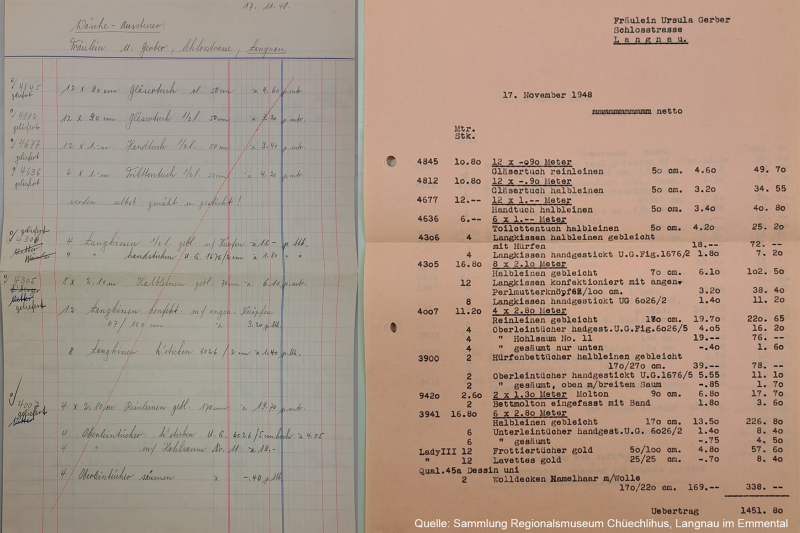 17. 11. 48.
Wäsche-Aussteuer
Fräulein U. Gerber, Schlosstrasse, Langnau
4845 12 x 90 cm Gläsertuch rl. 50 cm à 4.60 p. mtr.
geliefert
4812 12 x 90 cm Gläsertuch 1/2 l. 50 cm à 3.20 p. mtr.
geliefert
4677 12 x 1.- m Handtuch 1/2 l. 50 cm à 3.40 p. mtr.
geliefert
4636 6 x 1.- m Toilettentuch 1/2 l. 50 cm à 4.20 p. mtr.
geliefert
werden selbst genäht u. gestickt!
geliefert
4306 4 Langkissen 1/2 l. gebl. m/ Hürfen à 18.- p. Stk.
4 " handsticken U. G. 1676/2 cm à 1.80 " "
4305 8 x 2.10 m Halbleinen gebl. 70 cm à 6.10 p. mtr.
geliefert
12 Langkissen konfekt. m/ angen. Knöpfen
67/100 cm à 3.20 p. Stk.
8 Langkissen h'sticken 6026/2 cm à 1.40 p. Stk.
4007 4 x 2.80 m Reinleinen gebl. 180 cm à 19.70 p. mtr.
geliefert
4 Oberleintücher h'sticken U. G. 6026/5 à 4.05
4 " m/ Hohlsaum Nr. 11 à 19.-
4 Oberleintücher säumen à -.40 p. Stk.
Fräulein Ursula Gerber
Schlosstrasse
Langnau.
17. November 1948
netto
Mtr.
Stk.
4845 10.80 12 x -.90 Meter
Gläsertuch reinleinen 50 cm. 4.60 49. 70
4812 10.80 12 x -.90 Meter
Gläsertuch halbleinen 50 cm. 3.20 34. 55
4677 12.-- 12 x 1.-- Meter
Handtuch halbleinen 50 cm. 3.40 40. 80
4636 6.-- 6 x 1.-- Meter
Toilettentuch halbleinen 50 cm. 4.20 25. 20
4306 4 Langkissen halbleinen gebleicht
mit Hürfen 18.-- 72. --
4 Langkissen handgestickt U.G.Fig.1676/2 1.80 7. 20
4305 16.80 8 x 2.10 Meter
Halbleinen gebleicht 70 cm. 6.10 102. 50
12 Langkissen konfektioniert mit angen.
Perlmutterknöpfen/100 cm. 3.20 38. 40
8 Langkissen handgestickt UG 6026/2 1.40 11. 20
4007 11.20 4 x 2.80 Meter
Reinleinen gebleicht 180 cm. 19.70 220. 65
4 Oberleintücher hadgest.U.G.Fig.6026/5 4.05 16. 20
4 " Hohlsaum No. 11 19.-- 76. --
4 " gesäumt nur unten -.40 1. 60
3900 2 Hürfenbettücher halbleinen gebleicht
170/270 cm. 39.-- 78. --
2 Oberleintücher handgestickt U.G.1676/5 5.55 11. 10
2 " gesäumt, oben m/breitem Saum -.85 1. 70
9420 2.60 2 x 1.30 Meter Molton 90 cm. 6.80 17. 70
2 Bettmolton eingefasst mit Band 1.80 3. 60
3941 16.80 6 x 2.80 Meter
Halbleinen gebleicht 170 cm. 13.50 226. 80
6 Unterleintücher handgest.U.G. 6026/2 1.40 8. 40
6 " gesäumt -.75 4. 50
LadyIII 12 Frottiertücher gold 50/100 cm. 4.80 57. 60
" 12 Lavettes gold 25/25 cm. -.70 8. 40
Qual.45a Dessin uni
2 Wolldecken Kamelhaar m/Wolle
170/220 cm. 169.-- 338. --
Uebertrag 1451. 80
Quelle: Sammlung Regionalsmuseum Chüechlihus, Langnau im Emmental